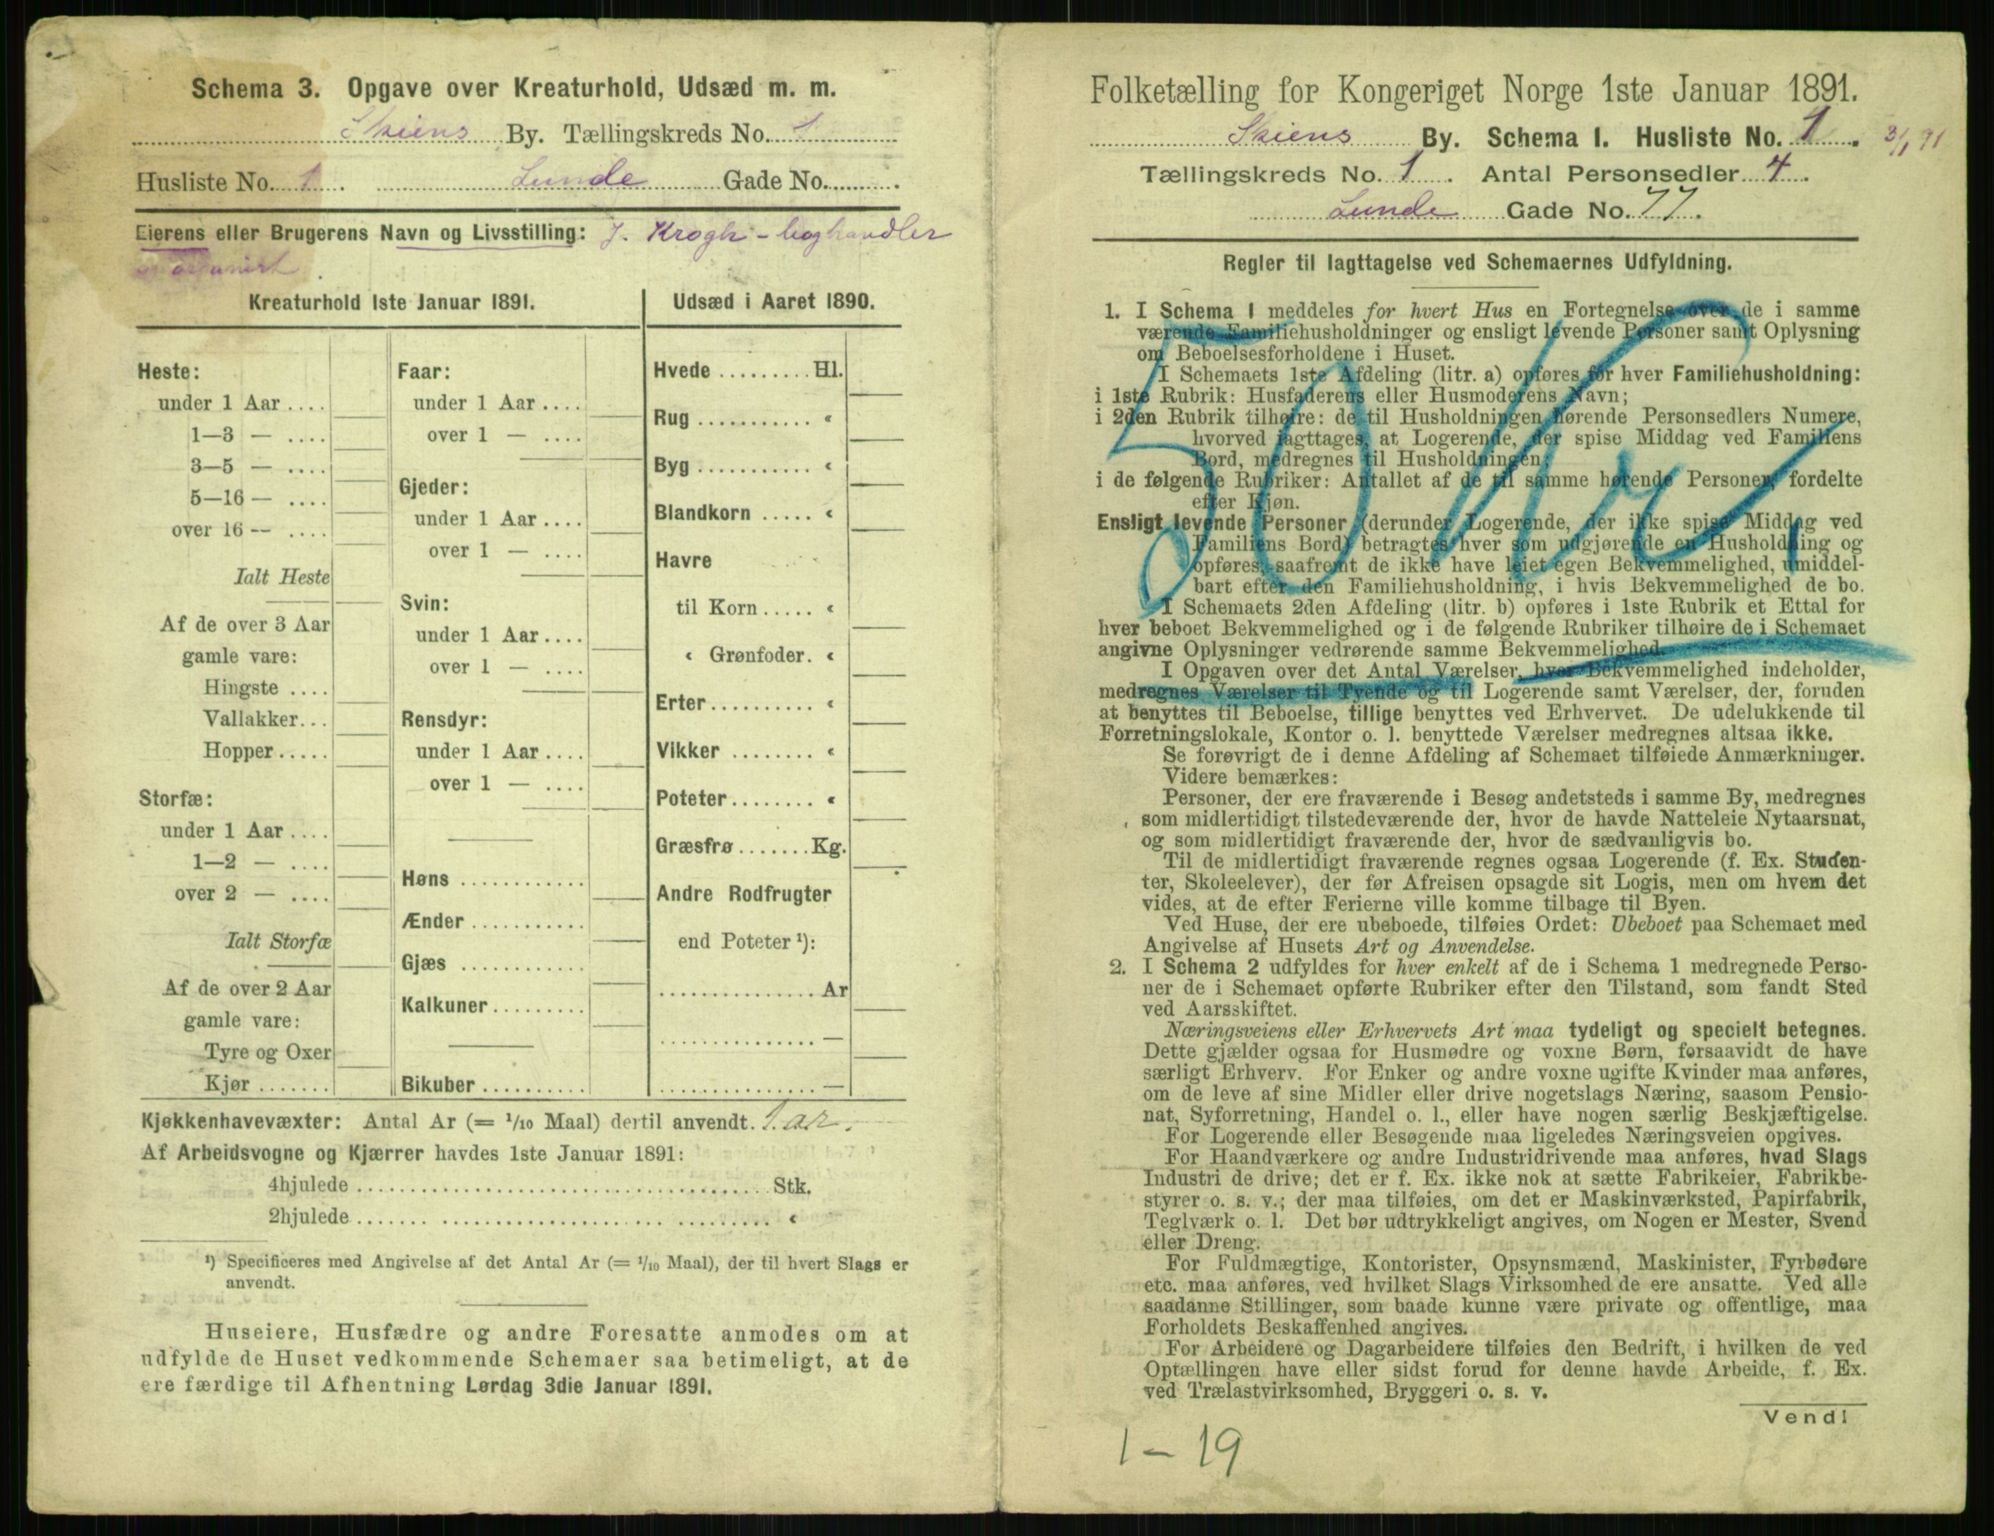 Schema 3. Opgave over Kreaturhold, Udsæd m. m.
Skiens By. Tællingskreds No. 1
Husliste No. 1. Lunde Gade No. .
Eierens eller Brugerens Navn og Livsstilling: J. Krogh - boghandler
og organist.
Kreaturhold 1ste Januar 1891.
Heste:
under 1 Aar ....
1—3 — ....
3—5 — ....
5—16 — ....
over 16 — ....
Ialt Heste
Af de over 3 Aar
gamle vare:
Hingste ....
Vallakker...
Hopper.....
Storfæ:
under 1 Aar ....
1—2 — ....
over 2 — ....
Ialt Storfæ
Af de over 2 Aar
gamle vare:
Tyre og Oxer
Kjør .......
Faar:
under 1 Aar ....
over 1 — ....
Gjeder:
under 1 Aar ....
over 1 — ....
Svin:
under 1 Aar ....
over 1 — ....
Rensdyr:
under 1 Aar ....
over 1 — ....
Høns ............
Ænder ...........
Gjæs ............
Kalkuner.........
Bikuber ..........
Udsæd i Aaret 1890.
Hvede ......... Hl.
Rug ........... «
Byg ........... «
Blandkorn ..... «
Havre
til Korn ..... «
« Grønfoder. «
Erter.......... «
Vikker ........ «
Poteter........ «
Græsfrø ....... Kg.
Andre Rodfrugter
end Poteter ¹):
............... Ar
............... —
............... —
Kjøkkenhavevæxter: Antal Ar (= 1/10 Maal) dertil anvendt. 1 ar.
Af Arbeidsvogne og Kjærrer havdes 1ste Januar 1891:
4hjulede ....................................... Stk.
2hjulede ....................................... «
¹) Specificeres med Angivelse af det Antal Ar (= 1/10 Maal), der til hvert Slags er
anvendt.
Huseiere, Husfædre og andre Foresatte anmodes om at
udfylde de Huset vedkommende Schemaer saa betimeligt, at de
ere færdige til Afhentning Lørdag 3die Januar 1891.
Folketælling for Kongeriget Norge 1ste Januar 1891.
Skiens By. Schema I. Husliste No. 1. 3/1 91
Tællingskreds No. 1. Antal Personsedler 4.
Lunde Gade No. 77.
Regler til Iagttagelse ved Schemaernes Udfyldning.
50 Kr,
1. I Schema 1 meddeles for hvert Hus en Fortegnelse over de i samme
værende Familiehusholdninger og ensligt levende Personer samt Oplysning
om Beboelsesforholdene i Huset.
I Schemaets 1ste Afdeling (litr. a) opføres for hver Familiehusholdning:
i 1ste Rubrik: Husfaderens eller Husmoderens Navn;
i 2den Rubrik tilhøire: de til Husholdningen hørende Personsedlers Numere,
hvorved iagttages, at Logerende, der spise Middag ved Familiens
Bord, medregnes til Husholdningen;
i de følgende Rubriker: Antallet af de til samme hørende Personer, fordelte
efter Kjøn.
Ensligt levende Personer (derunder Logerende, der ikke spise Middag ved
Familiens Bord) betragtes hver som udgjørende en Husholdning og
opføres, saafremt de ikke have leiet egen Bekvemmelighed, umiddel-
bart efter den Familiehusholdning, i hvis Bekvemmelighed de bo.
I Schemaets 2den Afdeling (litr. b) opføres i 1ste Rubrik et Ettal for
hver beboet Bekvemmelighed og i de følgende Rubriker tilhøire de i Schemaet
angivne Oplysninger vedrørende samme Bekvemmelighed.
I Opgaven over det Antal Værelser, hver Bekvemmelighed indeholder,
medregnes Værelser til Tyende og til Logerende samt Værelser, der, foruden
at benyttes til Beboelse, tillige benyttes ved Erhvervet. De udelukkende til
Forretningslokale, Kontor o. l. benyttede Værelser medregnes altsaa ikke.
Se forøvrigt de i denne Afdeling af Schemaet tilføiede Anmærkninger.
Videre bemærkes:
Personer, der ere fraværende i Besøg andetsteds i samme By, medregnes
som midlertidigt tilstedeværende der, hvor de havde Natteleie Nytaarsnat,
og som midlertidigt fraværende der, hvor de sædvanligvis bo.
Til de midlertidigt fraværende regnes ogsaa Logerende (f. Ex. Studen-
ter, Skoleelever), der før Afreisen opsagde sit Logis, men om hvem det
vides, at de efter Ferierne ville komme tilbage til Byen.
Ved Huse, der ere ubeboede, tilføies Ordet: Ubeboet paa Schemaet med
Angivelse af Husets Art og Anvendelse.
2. I Schema 2 udfyldes for hver enkelt af de i Schema 1 medregnede Perso-
ner de i Schemaet opførte Rubriker efter den Tilstand, som fandt Sted
ved Aarsskiftet.
Næringsveiens eller Erhvervets Art maa tydeligt og specielt betegnes.
Dette gjælder ogsaa for Husmødre og voxne Børn, forsaavidt de have
særligt Erhverv. For Enker og andre voxne ugifte Kvinder maa anføres,
om de leve af sine Midler eller drive nogetslags Næring, saasom Pensio-
nat, Syforretning, Handel o. l., eller have nogen særlig Beskjæftigelse.
For Logerende eller Besøgende maa ligeledes Næringsveien opgives.
For Haandværkere og andre Industridrivende maa anføres, hvad Slags
Industri de drive; det er f. Ex. ikke nok at sætte Fabrikeier, Fabrikbe-
styrer o. s. v.; der maa tilføies, om det er Maskinværksted, Papirfabrik,
Teglværk o. l. Det bør udtrykkeligt angives, om Nogen er Mester, Svend
eller Dreng.
For Fuldmægtige, Kontorister, Opsynsmænd, Maskinister, Fyrbødere
etc. maa anføres, ved hvilket Slags Virksomhed de ere ansatte. Ved alle
saadanne Stillinger, som baade kunne være private og offentlige, maa
Forholdets Beskaffenhed angives.
For Arbeidere og Dagarbeidere tilføies den Bedrift, i hvilken de ved
Optællingen have eller sidst forud for denne havde Arbeide, f. Ex.
ved Trælastvirksomhed, Bryggeri o. s. v.
Vend!
1 - 19